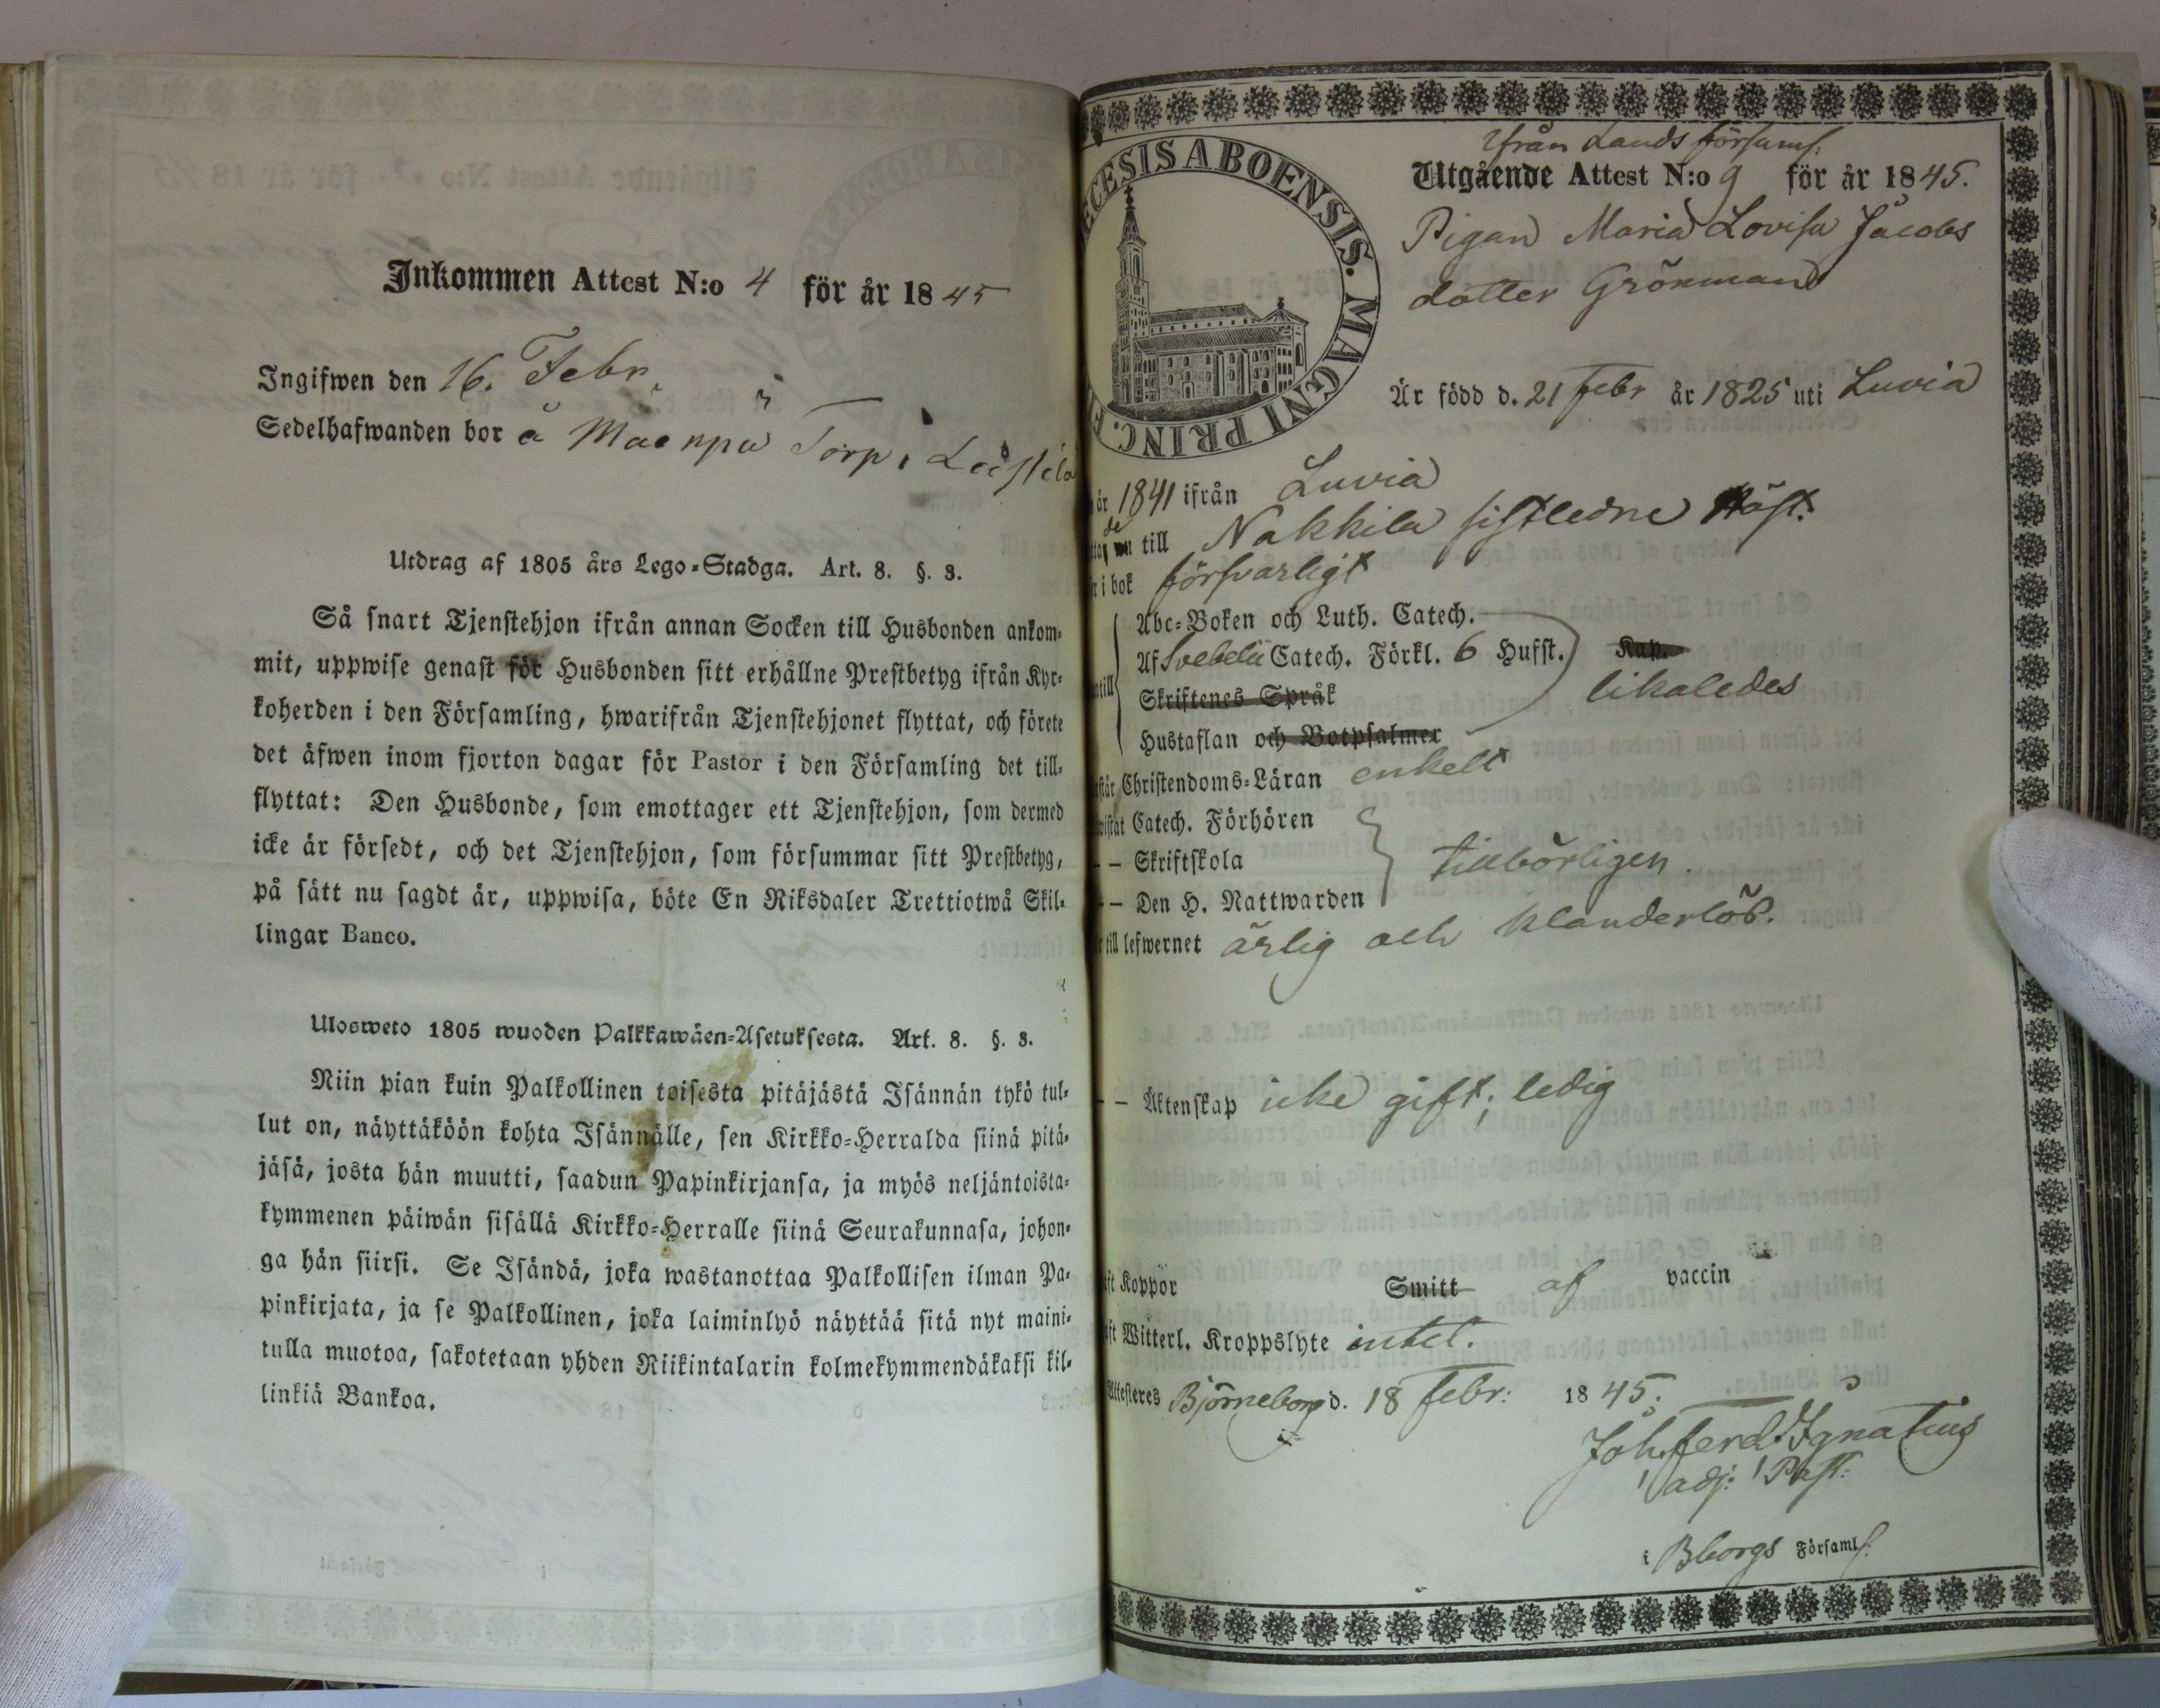 Inkommen Attest N:o 4 för år 1845
Ingifwen den 16. Febr.
Sedelhafwanden bor å Maenpä Torp i Leistila
Utdrag af 1805 års Lego-Stadga. Art. 8. §. 3.
Så snart Tjenstehjon ifrån annan Socken till Husbonden ankom-
mit, uppwise genast för Husbonden sitt erhållne Prestbetyg ifrån Kyr-
koherden i den Församling, hwarifrån Tjenstehjonet flyttat, och förete
det äfwen inom fjorton dagar för Pastor i den Församling det till-
flyttat: Den Husbonde, som emottager ett Tjenstehjon, som dermed
icke är försedt, och det Tjenstehjon, som försummar sitt Prestbetyg,
på sätt nu sagdt är, uppwisa, böte En Riksdaler Trettiotwå Skil-
lingar Banco.
Ulosweto 1805 wuoden Palkkawäen-Asetuksesta. Art. 8. §. 3.
Niin pian kuin Palkollinen toisesta pitäjästä Isännän tykö tul-
lut on, näyttäköön kohta Isännälle, sen Kirkko-Herralda siinä pitä-
jäsä, josta hän muutti, saadun Papinkirjansa, ja myös neljäntoista-
kymmenen päiwän sisällä Kirkko-Herralle siinä Seurakunnasa, johon-
ga hän siirsi. Se Isändä, joka wastanottaa Palkollisen ilman Pa-
pinkirjata, ja se Palkollinen, joka laiminlyö näyttää sitä nyt maini-
tulla muotoa, sakotetaan yhden Riikintalarin kolmekymmendäkaksi kil-
linkiä Bankoa.
ECESIS ABOENSIS. MAGNI PRINC. FI
Ifrån Lands församl:
Utgående Attest N:o 9 för år 1845.
Pigan Maria Lovisa Jacobs
dotter Grönman
Är född d. 21 febr år 1825 uti Luvia
år 1841 ifrån Luvia
till Nakkila sistledne Höst.
i bok försvarligt
Abc-Boken och Luth. Catech.
Af Svebelii Catech. Förkl. 6 Hufst. Kap.
likaledes
Skriftenes Språk
Hustaflan och Botpsalmer
Christendoms-Läran enkelt
Catech. Förhören
– – Skriftskola tillbörligen.
– – Den H. Nattwarden
till lefwernet ärlig och klanderlös.
– – Äktenskap icke gift; ledig
Koppor Smitt af vaccin
Witterl. Kroppslyte intet.
Attesteres Björneborg d. 18 Febr: 1845.
Joh. Ferd. Ignatius
adj: Past:
i Bborgs Församl: